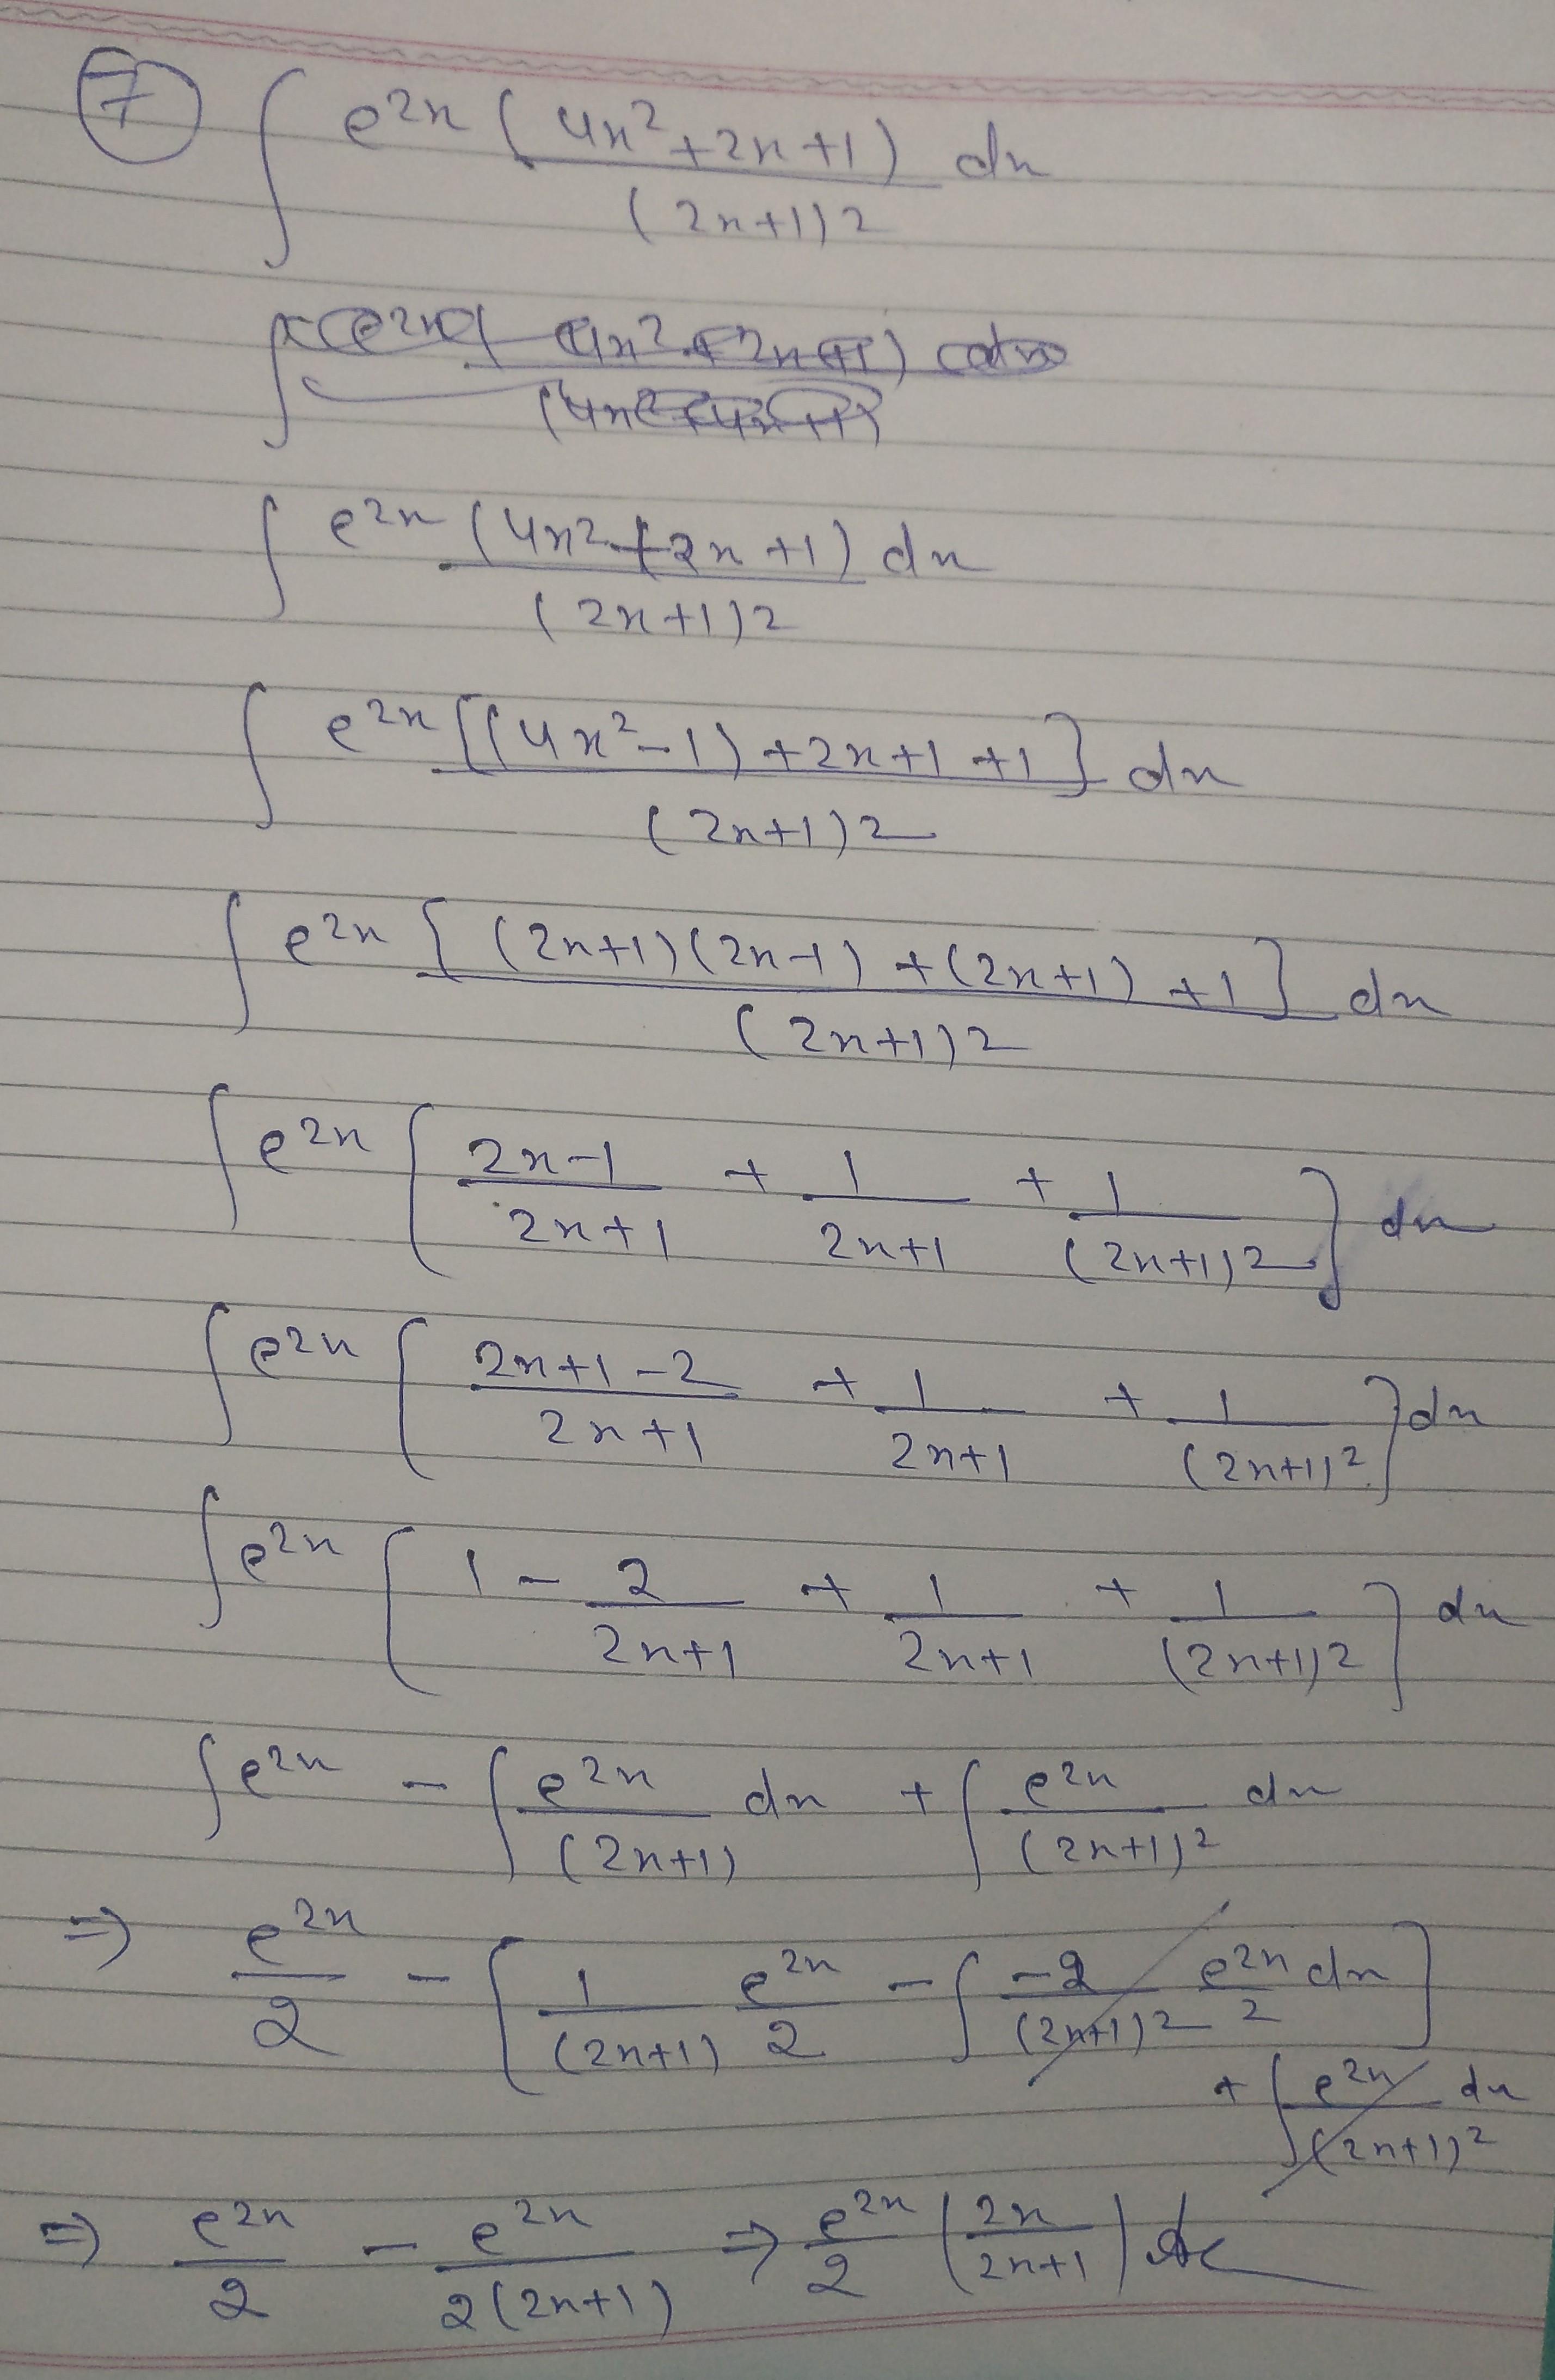 ⑦ ∫ e^{2x} (4x²+2x+1) / (2x+1)² dx
∫ e^{2x} (4x²+2x+1) / (4x²+4x+1) dx
∫ e^{2x} (4x²+2x+1) / (2x+1)² dx
∫ e^{2x} [(4x²-1)+2x+1+1] / (2x+1)² dx
∫ e^{2x} [(2x+1)(2x-1)+(2x+1)+1] / (2x+1)² dx
∫ e^{2x} [ (2x-1)/(2x+1) + 1/(2x+1) + 1/(2x+1)² ] dx
∫ e^{2x} [ (2x+1-2)/(2x+1) + 1/(2x+1) + 1/(2x+1)² ] dx
∫ e^{2x} [ 1 - 2/(2x+1) + 1/(2x+1) + 1/(2x+1)² ] dx
∫ e^{2x} - ∫ e^{2x}/(2x+1) dx + ∫ e^{2x}/(2x+1)² dx
⇒ e^{2x}/2 - [ 1/(2x+1) e^{2x}/2 - ∫ -2/(2x+1)² e^{2x}/2 dx ]
+ ∫ e^{2x}/(2x+1)² dx
⇒ e^{2x}/2 - e^{2x}/2(2x+1) ⇒ e^{2x}/2 (2x/(2x+1)) +c